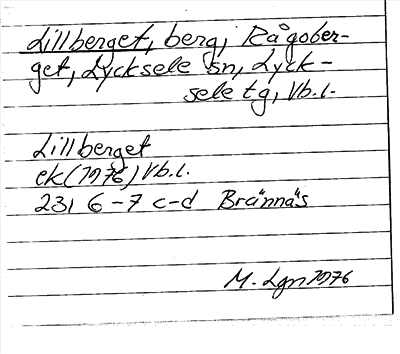 Lillberget, berg, Rågober-
get, Lycksele sn, Lyck-
sele tg, Vb.l.
Lillberget
ek (1976) Vb.l.
23I 6-7 c-d Brännäs
M. Lgn 1976